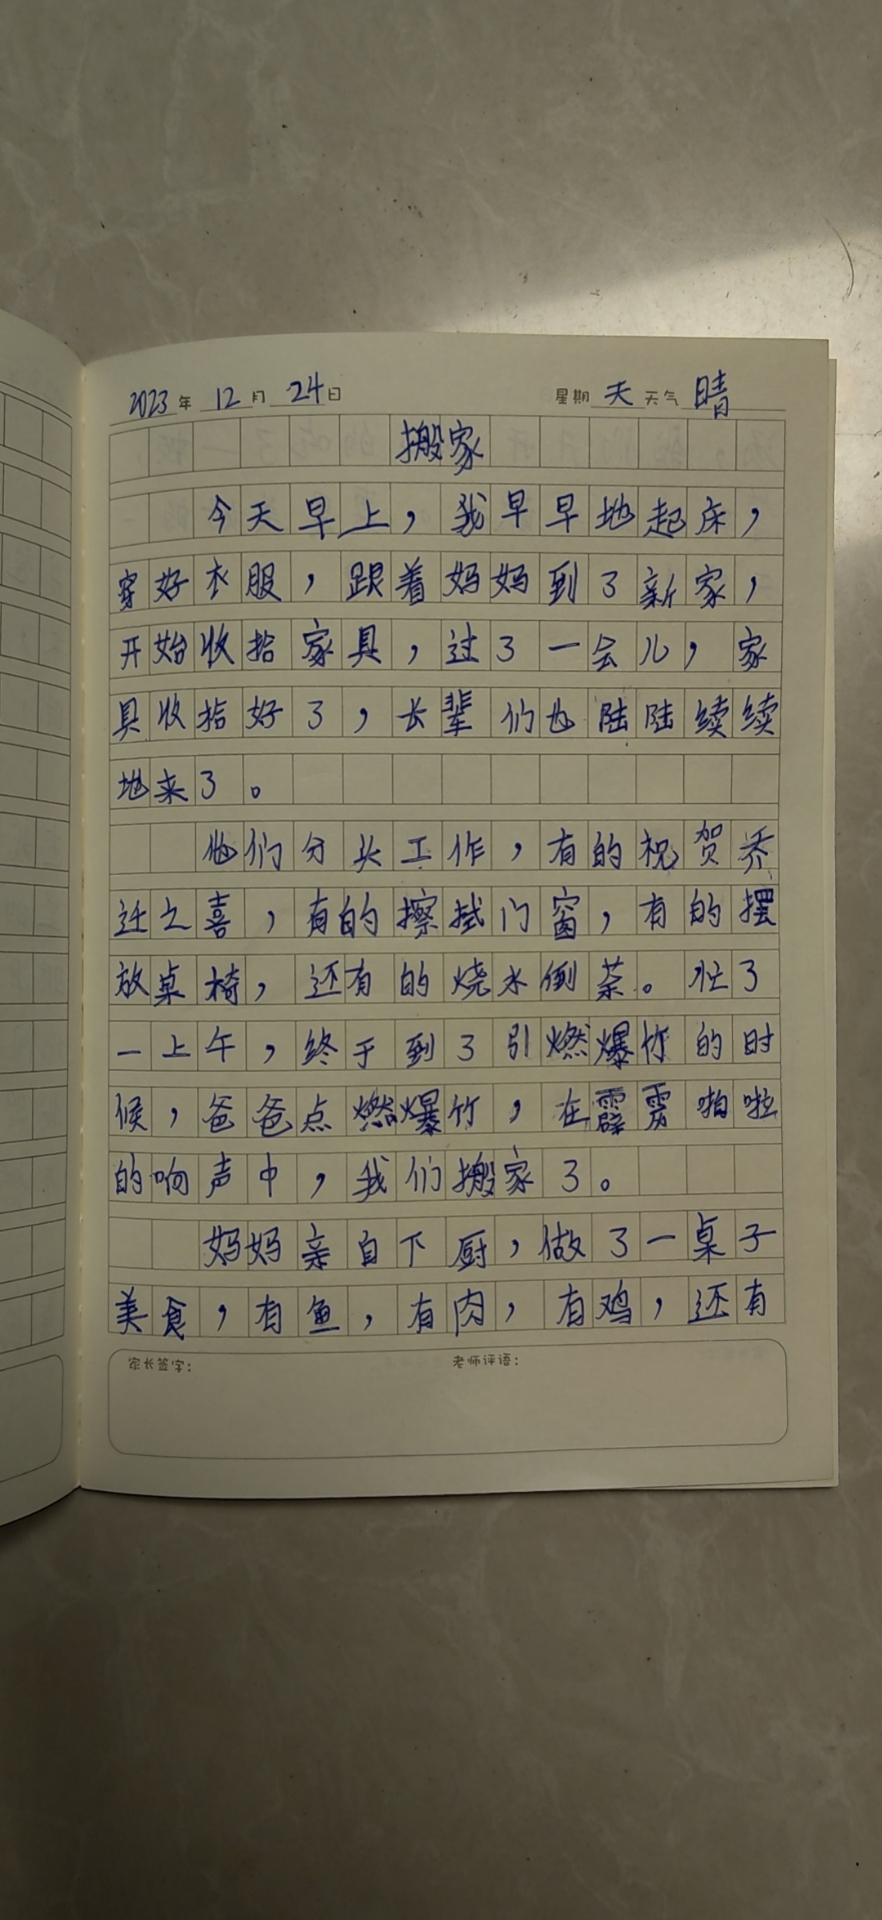 2023年12月24日 星期天天气晴
搬家
今天早上，我早早地起床，
穿好衣服，跟着妈妈到了新家，
开始收拾家具，过了一会儿，家
具收拾好了，长辈们也陆陆续续
地来了。
他们分头工作，有的祝贺乔
迁之喜，有的擦拭门窗，有的摆
放桌椅，还有的烧水倒茶。忙了
一上午，终于到了引燃爆竹的时
候，爸爸点燃爆竹，在霹雳啪啦
的响声中，我们搬家了。
妈妈亲自下厨，做了一桌子
美食，有鱼，有肉，有鸡，还有
家长签字： 老师评语：